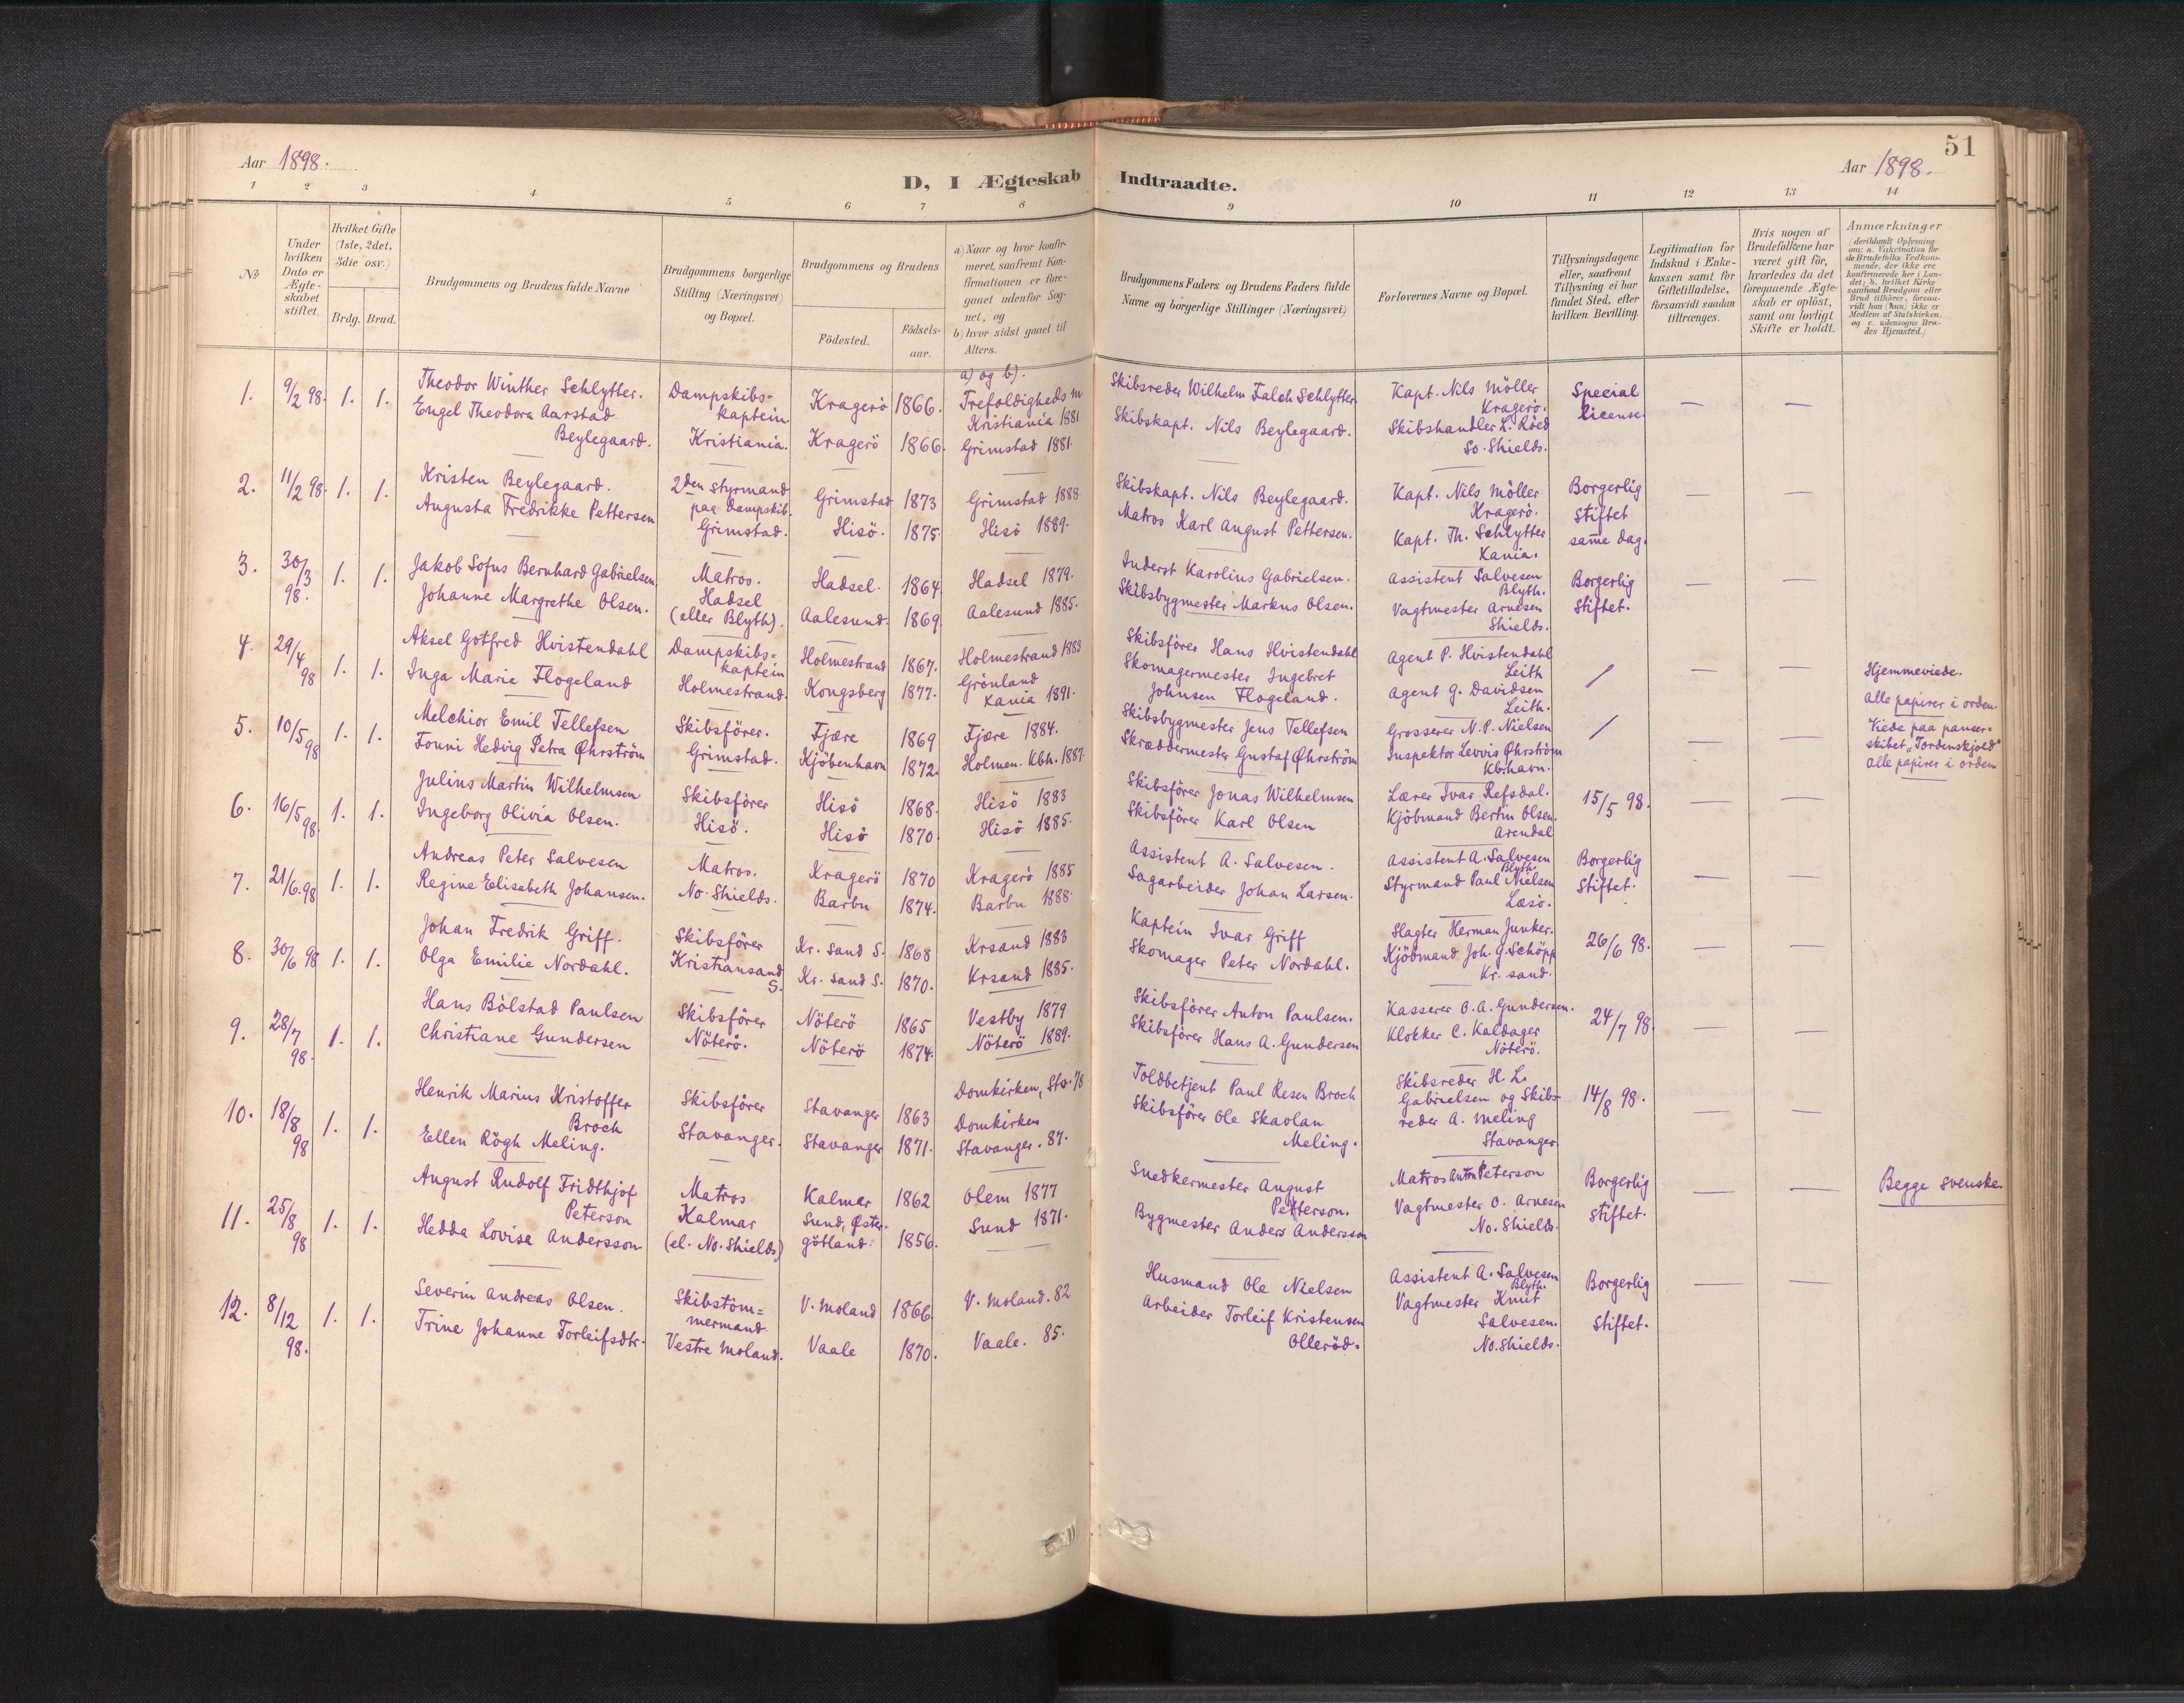 51
Aar 1898.
Aar 1898.
D, I Ægteskab Indtraadte.
1 2 3 4 5 6 7 8 9 10 11 12 13 14
No
Under hvilken Dato er Ægteskabet stiftet.
Hvilket Gifte (1ste, 2det, 3die osv.)
Brdg. Brud.
Brudgommens og Brudens fulde Navne
Brudgommens borgerlige Stilling (Næringsvei) og Bopæl.
Brudgommens og Brudens
Födested.
Födsels-aar.
a) Naar og hvor konfir-
meret, saafremt Kon-
firmationen er fore-
gaaet udenfor Sog-
net, og
b) hvor sidst gaaet til
Alters.
Brudgommens Faders og Brudens Faders fulde
Navne og borgerlige Stillinger (Næringsvei)
Forlovernes Navne og Bopæl.
Tillysningsdagene
eller, saafremt
Tillysning ei har
fundet Sted, efter
hvilken Bevilling.
Legitimation for
Indskud i Enke-
kassen samt for
Giftetilladelse,
forsaavidt saadan
tiltrænges.
Hvis nogen af
Brudefolkene har
været gift för,
hvorledes da det
foregaaende Ægte-
skab er oplöst,
samt om lovligt
Skifte er holdt.
Anmærkninger
(deriblandt Oplysning
om: a. Vakcination for
de Brudefolks Vedkom-
mende, der ikke ere
konfirmerede her i Lan-
det; b. hvilket Kirke-
samfund Brudgom eller
Brud tilhörer, forsaa-
vidt han (hun) ikke er
Medlem af Statskirken,
og c. udensogns Bru-
des Hjemsted.)
1. 9/2 98. 1. 1.
Theodor Winther Schlytter.
Engel Theodora Aarstad
Beylegaard.
Dampskibs-
kaptein.
Kristiania.
Kragerö 1866.
Kragerö 1866.
a) og b).
Trefoldigheds m
Kristiania 1881
Grimstad 1881.
Skibsreder Wilhelm Falch Schlytter.
Skibskapt. Nils Beylegaard.
Kapt. Nils Möller
Kragerö.
Skibshandler L. Röed
So. Shields.
Special
license.
2. 11/2 98. 1. 1.
Kristen Beylegaard.
Augusta Fredrikke Pettersen
2den Styrmand
paa Dampskib.
Grimstad.
Grimstad 1873
Hisö. 1875.
Grimstad 1888
Hisö 1889.
Skibskapt. Nils Beylegaard.
Matros Karl August Pettersen.
Kapt. Nils Möller
Kragerö.
Kapt. Th. Schlytter
Kania.
Borgerlig
Stiftet
same dag.
3. 30/3 98. 1. 1.
Jakob Sofus Bernhard Gabrielsen
Johanne Margrethe Olsen.
Matros.
Hadsel
(eller Blyth).
Hadsel. 1864
Aalesund. 1869
Hadsel 1879.
Aalesund 1885.
Inderst Karolius Gabrielsen.
Skibsbygmester Markus Olsen.
Assistent Salvesen
Blyth.
Vagtmester Arnesen
Shields.
Borgerlig
Stiftet.
4. 29/4 98 1. 1.
Aksel Gotfred Hvistendahl
Inga Marie Flogeland
Dampskibs-
kaptein
Holmestrand.
Holmestrand 1867.
Kongsberg 1877.
Holmestrand 1883
Grönland
Kania 1891.
Skibsförer Hans Hvistendahl
Skomagermester Ingebret
Johnsen Flogeland.
Agent P. Hvistendahl
Leith
Agent G. Davidsen
Leith.
Hjemmeviede.
Alle papirer i orden.
5. 10/5 98 1. 1.
Melchior Emil Tellefsen
Fonni Hedvig Petra Øhrström
Skibsförer.
Grimstad.
Fjære 1869
Kjöbenhavn 1872.
Fjære 1884.
Holmen. Kbh. 1887.
Skibsbygmester Jens Tellefsen
Skræddermester Gustaf Øhrström
Grosserer N. P. Nielsen
Inspektor Lewis Øhrström
Kbhavn.
Viede paa panser-
skibet „Tordenskjold"
Alle papirer i orden
6. 16/5 98. 1. 1.
Julius Martin Wilhelmsen
Ingeborg Olivia Olsen.
Skibsförer
Hisö.
Hisö 1868.
Hisö 1870.
Hisö 1883
Hisö 1885.
Skibsförer Jonas Wilhelmsen
Skibsförer Karl Olsen
Lærer Tvar Refsdal.
Kjöbmand Bertin Olsen.
Arendal
15/5 98.
7. 21/6.98 1. 1.
Andreas Peter Salvesen
Regine Elisabeth Johansen.
Matros.
No. Shields.
Kragerö 1870
Barbu 1874.
Kragerö 1885
Barbu 1888.
Assistent A. Salvesen.
Sagarbeider Johan Larsen.
Assistent A. Salvesen
Blyth.
Styrmand Paul Nielsen
Læsö.
Borgerlig
Stiftet.
8. 30/6 98 1. 1.
Johan Fredrik Griff.
Olga Emilie Nordahl.
Skibsförer
Kristiansand
S.
Kr. Sand S. 1868
Kr. Sand S. 1870.
Krsand 1883
Krsand 1885.
Kaptein Ivar Griff
Skomager Peter Nordahl.
Slagter Herman Junker.
Kjödmand Joh. G. Schöpp
Kr. sand.
26/6 98.
9. 28/7 98. 1. 1.
Hans Bölstad Paulsen
Christiane Gundersen
Skibsförer
Nöterö.
Nöterö 1865
Nöterö 1874.
Vestby 1879
Nöterö 1889.
Skibsförer Anton Paulsen.
Skibsförer Hans A. Gundersen
Kasserer O. A. Gundersen.
Klokker C. Kaldager
Nöterö.
24/7 98.
10. 18/8 98 1. 1.
Henrik Marius Kristoffer
Broch
Ellen Rögh Meling.
Skibsförer
Stavanger.
Stavanger 1863
Stavanger 1871.
Domkirken, Stv. 78
Domkirken
Stavanger. 87.
Toldbetjent Paul Resen Broch
Skibsförer Ole Skavlan
Meling.
Skibsreder H. L.
Gabrielsen og Skibs-
reder A. Meling
Stavanger.
14/8 98.
11. 25/8 98 1. 1.
August Rudolf Fridthjof
Peterson
Hedda Lovisa Andersson
Matros
Kalmar
(el. No. Shields)
Kalmar 1862
Sund, Øster-
götland. 1856.
Olem 1877
Sund 1871.
Snedkermester August
Petterson.
Bygmester Anders Andersson
Matros Anton Peterson
Vagtmester O. Arnesen
No. Shields.
Borgerlig
Stiftet.
Begge svenske
12. 8/12 98. 1. 1.
Severin Andreas Olsen.
Trine Johanne Torleifsdtr.
Skibstöm-
mermand.
Vestre Moland.
V. Moland 1866.
Vaale 1870.
V. Moland. 82
Vaale. 85.
Husmand Ole Nielsen
Arbeider Torleif Kristensen
Olleröd.
Assistent A. Salvesen
Blyth.
Vagtmester Knut
Salvesen.
No. Shields.
Borgerlig
Stiftet.